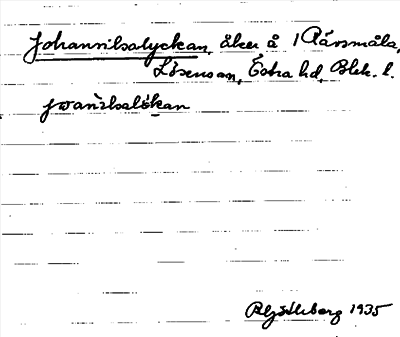 Johannilsalyckan, åker å 1 Rävsmåla,
Lösensan, Östra hd, Blek. l.
jwanilsalökan
R Gjötleborg 1935